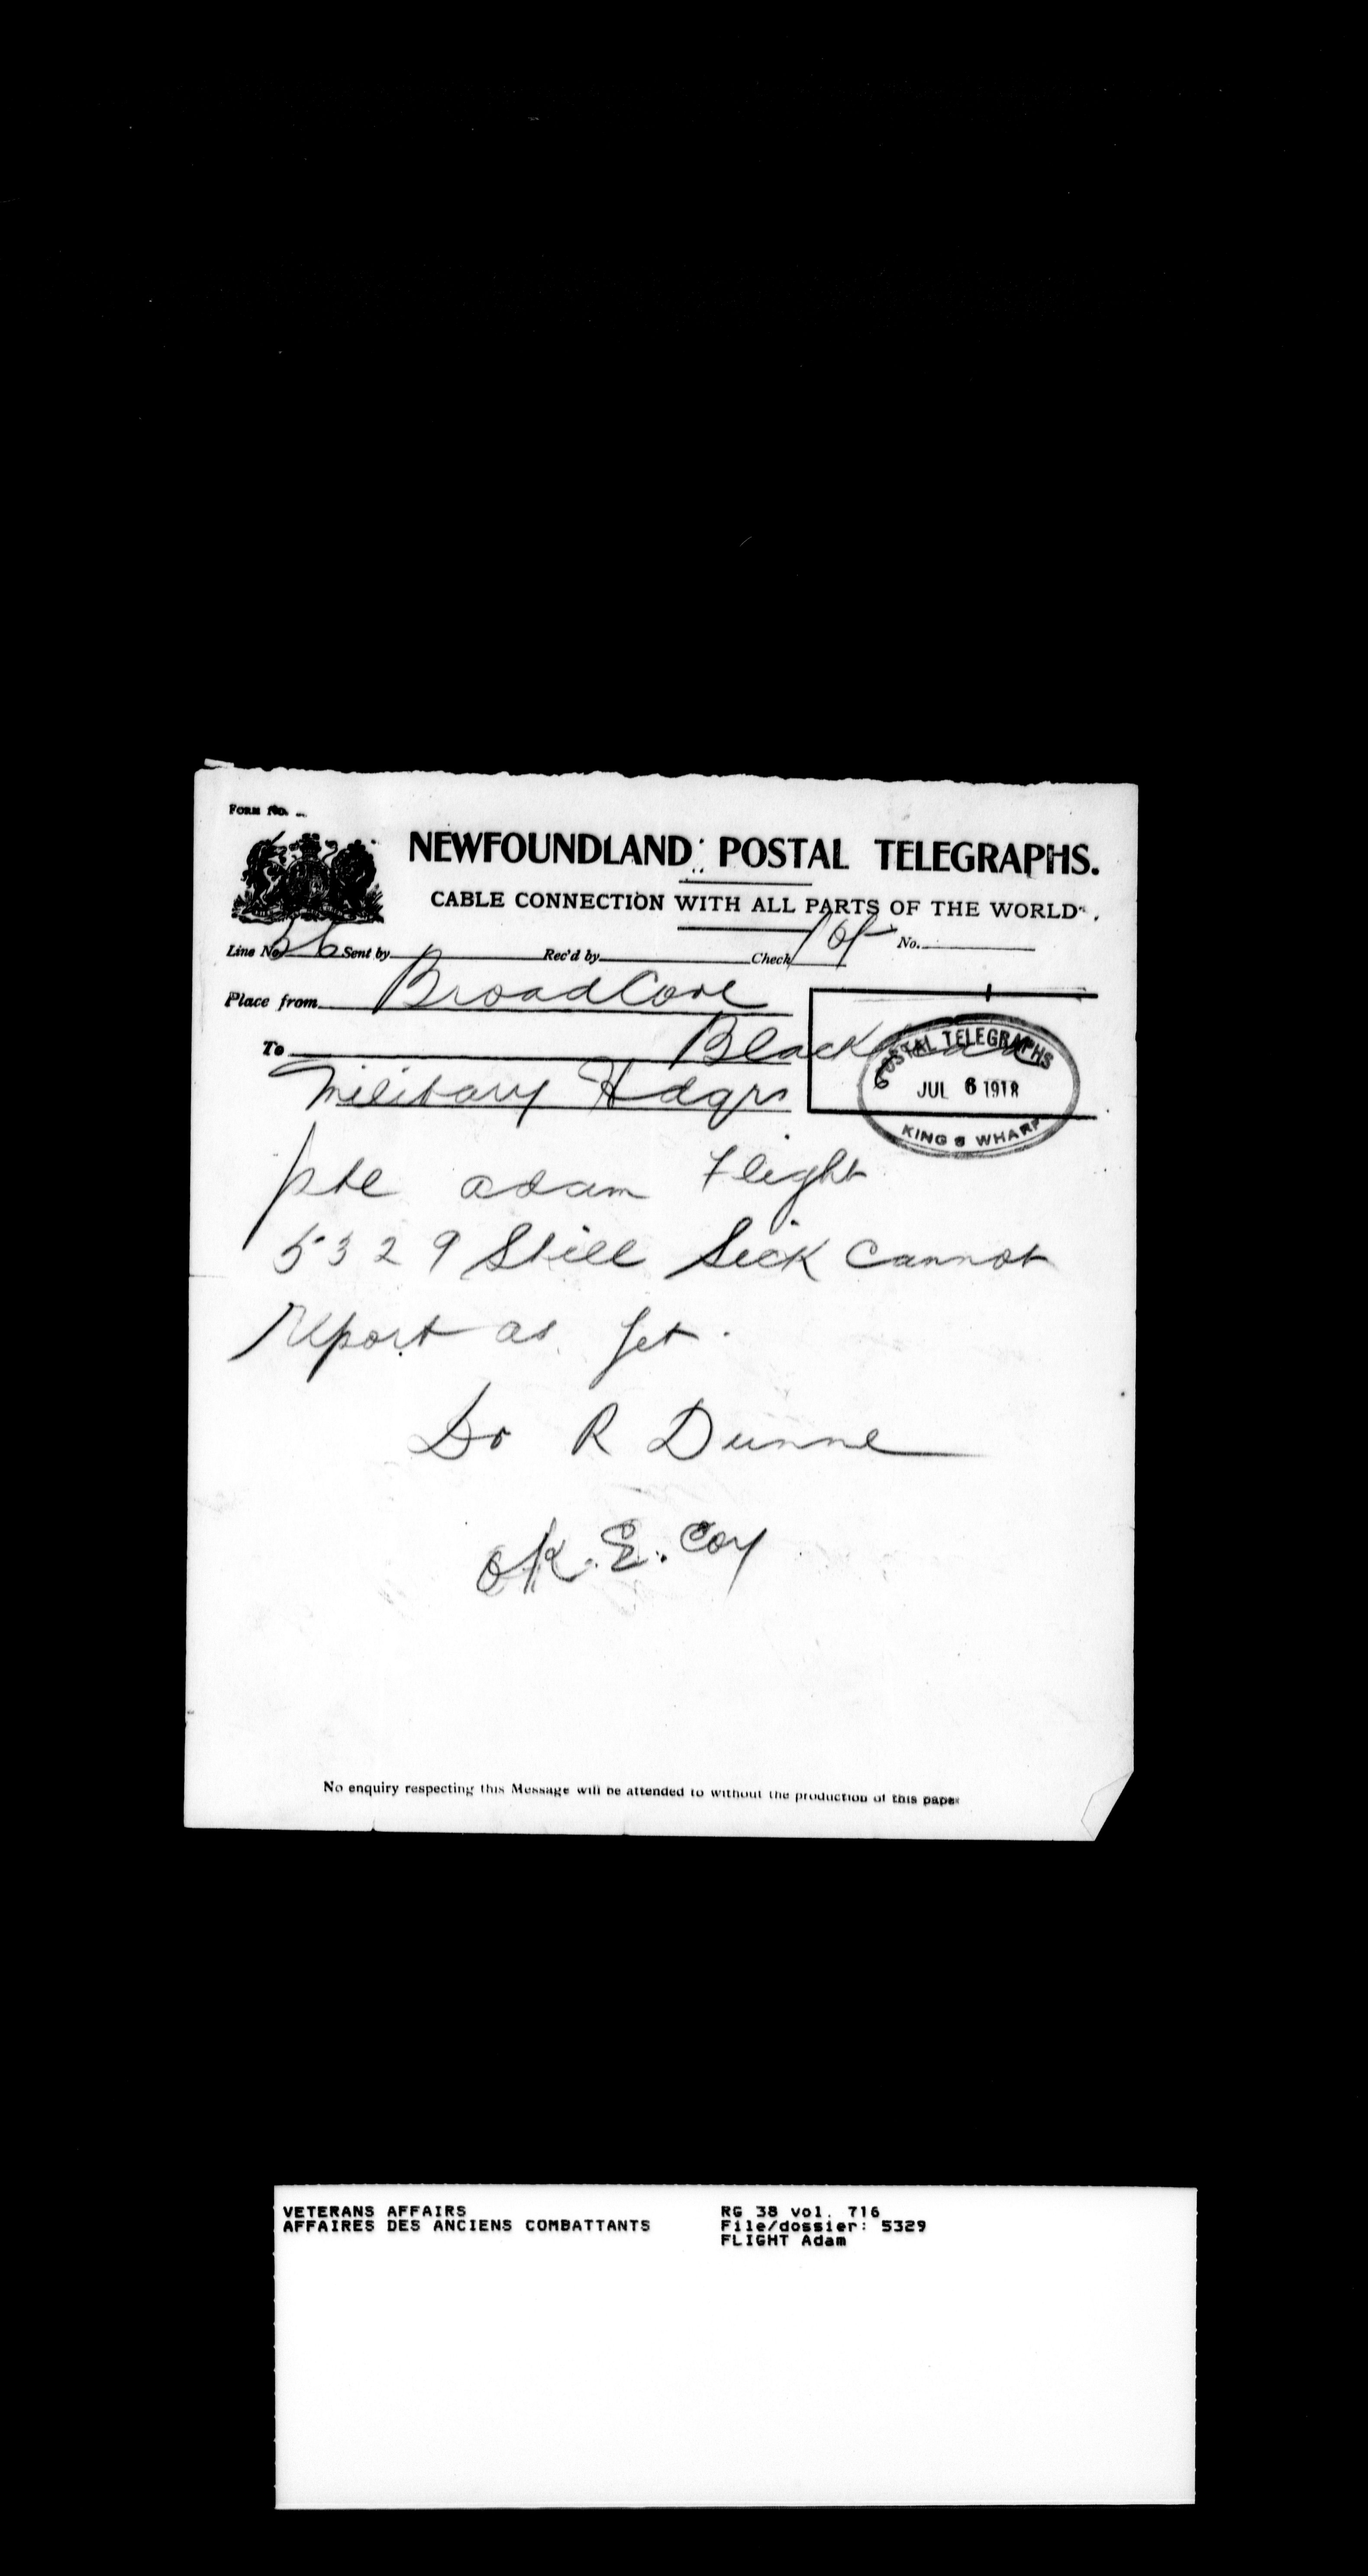 FORM NO.
NEWFOUNDLAND POSTAL TELEGRAPHS.
CABLE CONNECTION WITH ALL PARTS OF THE WORLD.
Line No. 26 Sent by Rec'd by Check No.
Place from Broad Cove
To
Military Hdqrs
POSTAL TELEGRAPHS
JUL 6 1918
KING'S WHARF
Pte adam Flight
5329 Still Sick Cannot
report as yet.
Dr R Dunne
OK. E. Coy
No enquiry respecting this Message will be attended to without the production of this paper
VETERANS AFFAIRS RG 38 vol. 716
AFFAIRES DES ANCIENS COMBATTANTS File/dossier: 5329
FLIGHT Adam